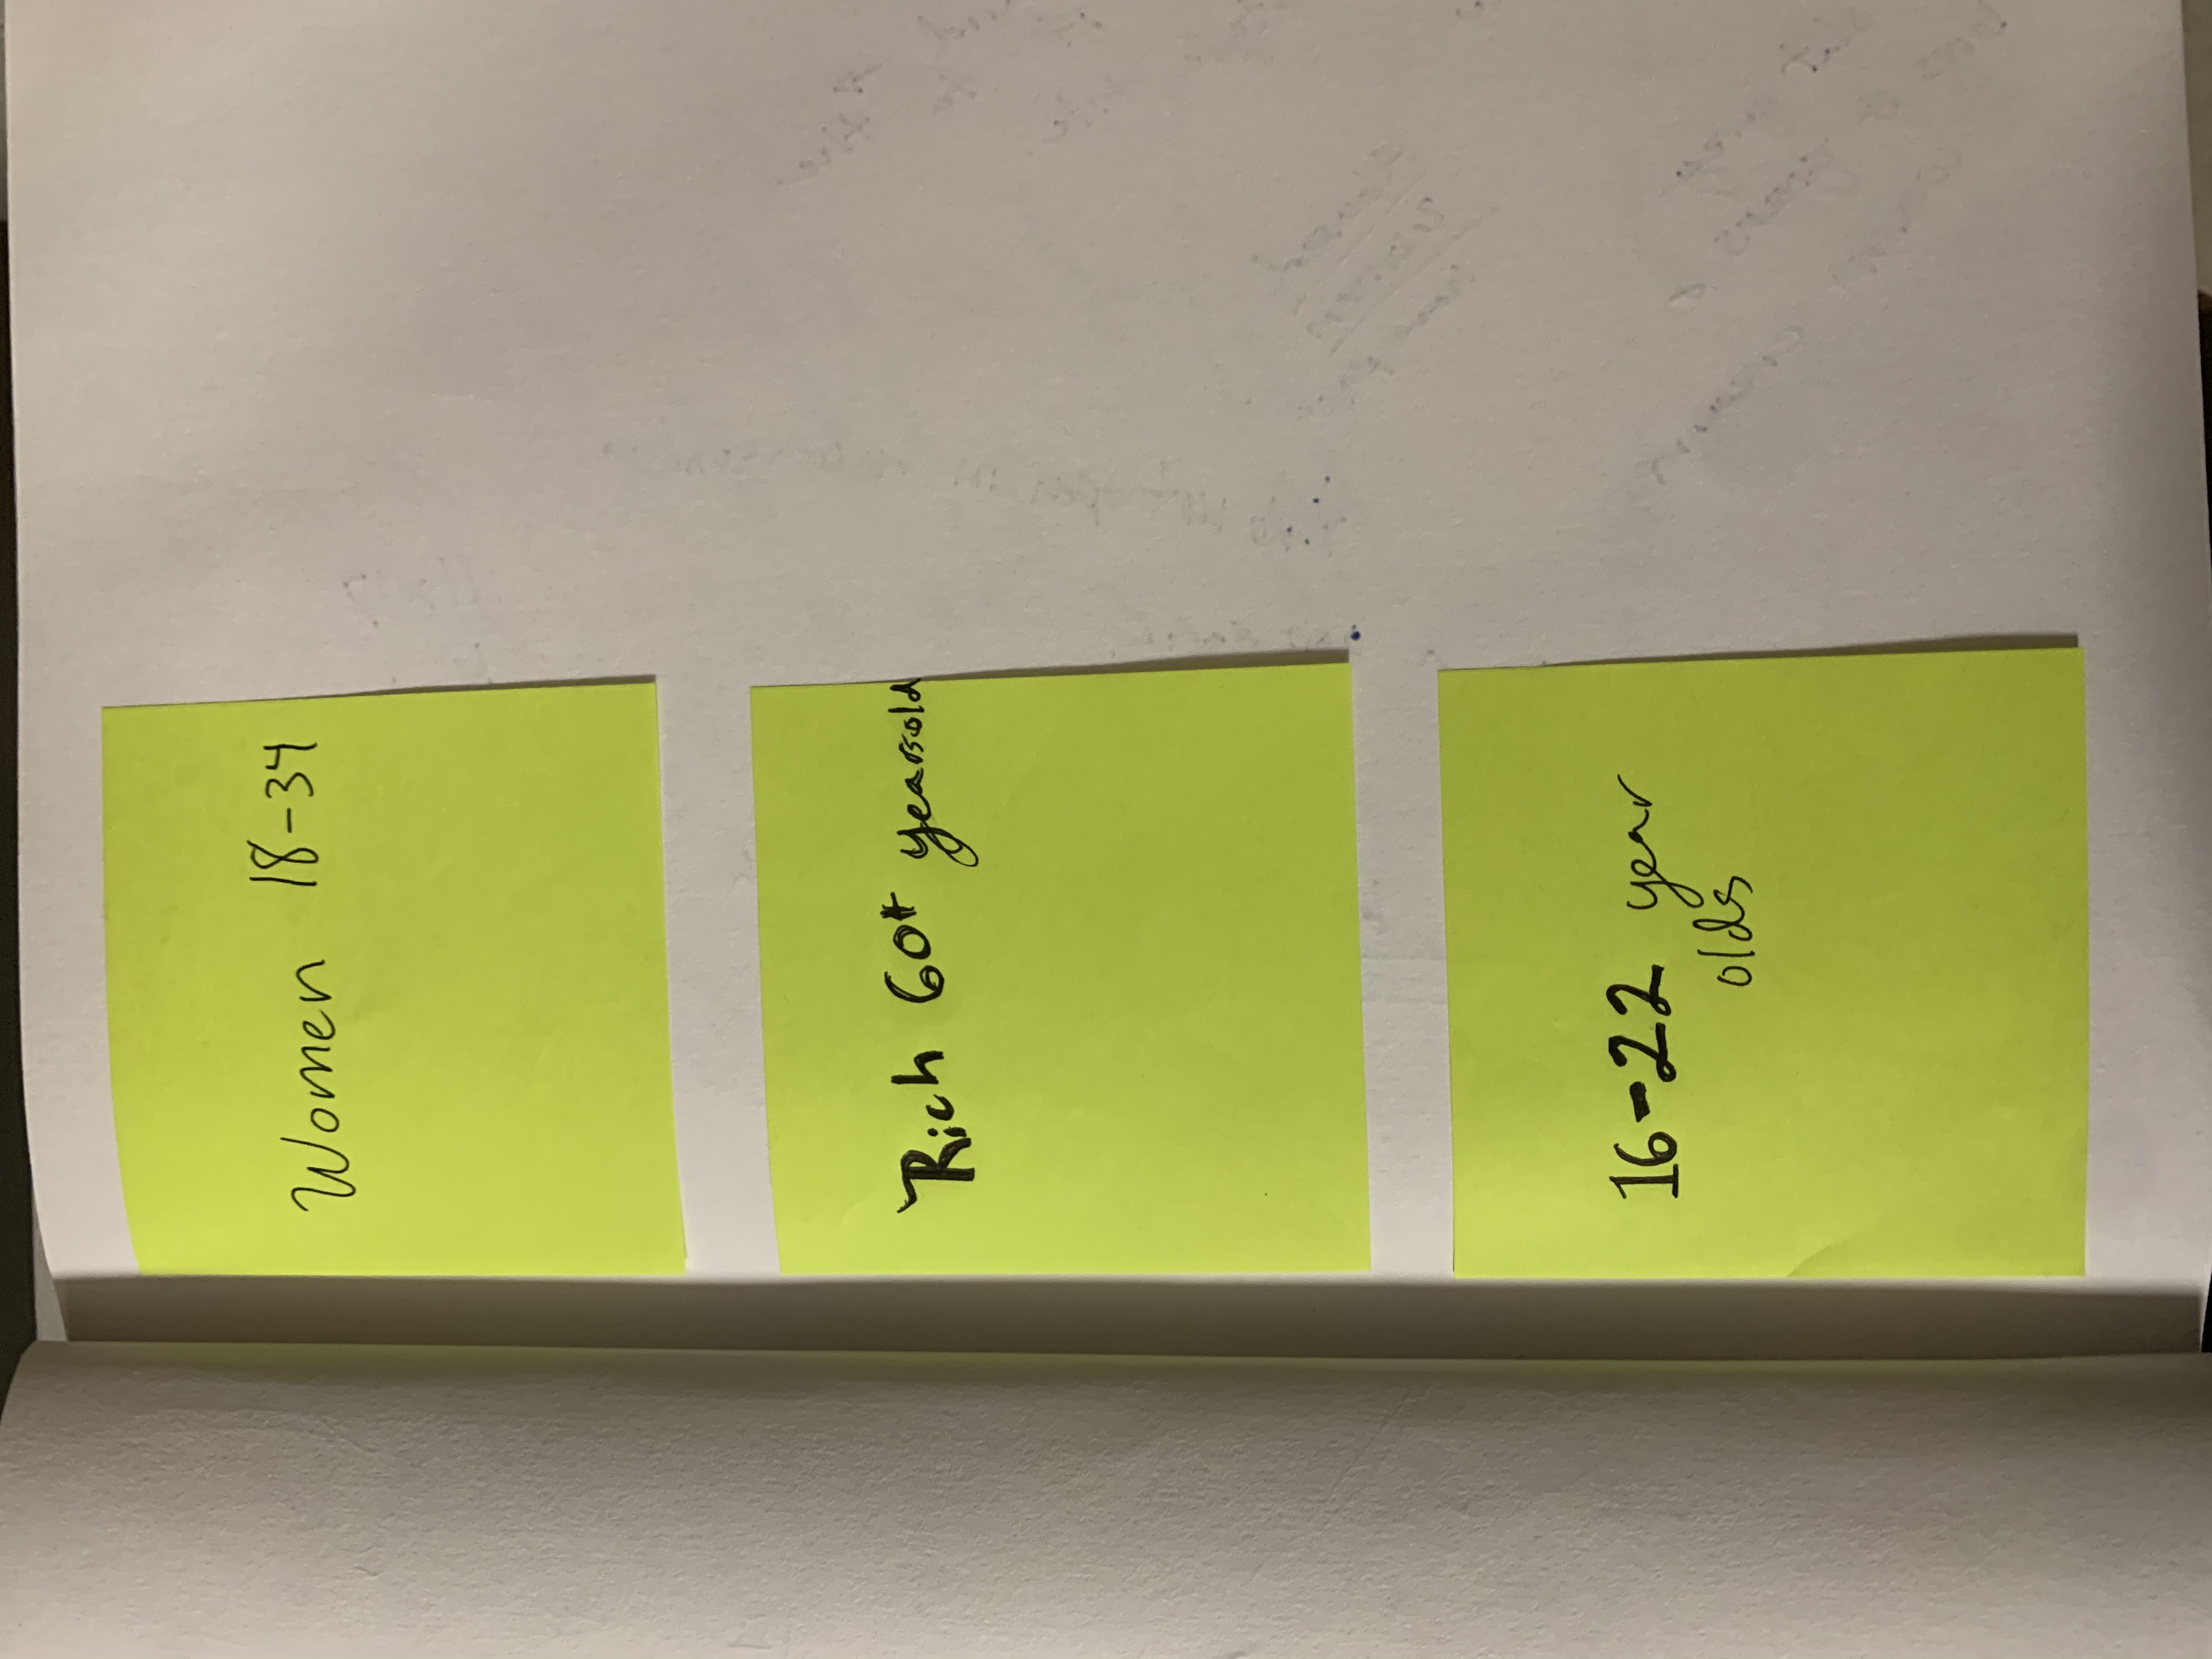 Women 18-34
Rich 60+ yearsold
16-22 year
olds